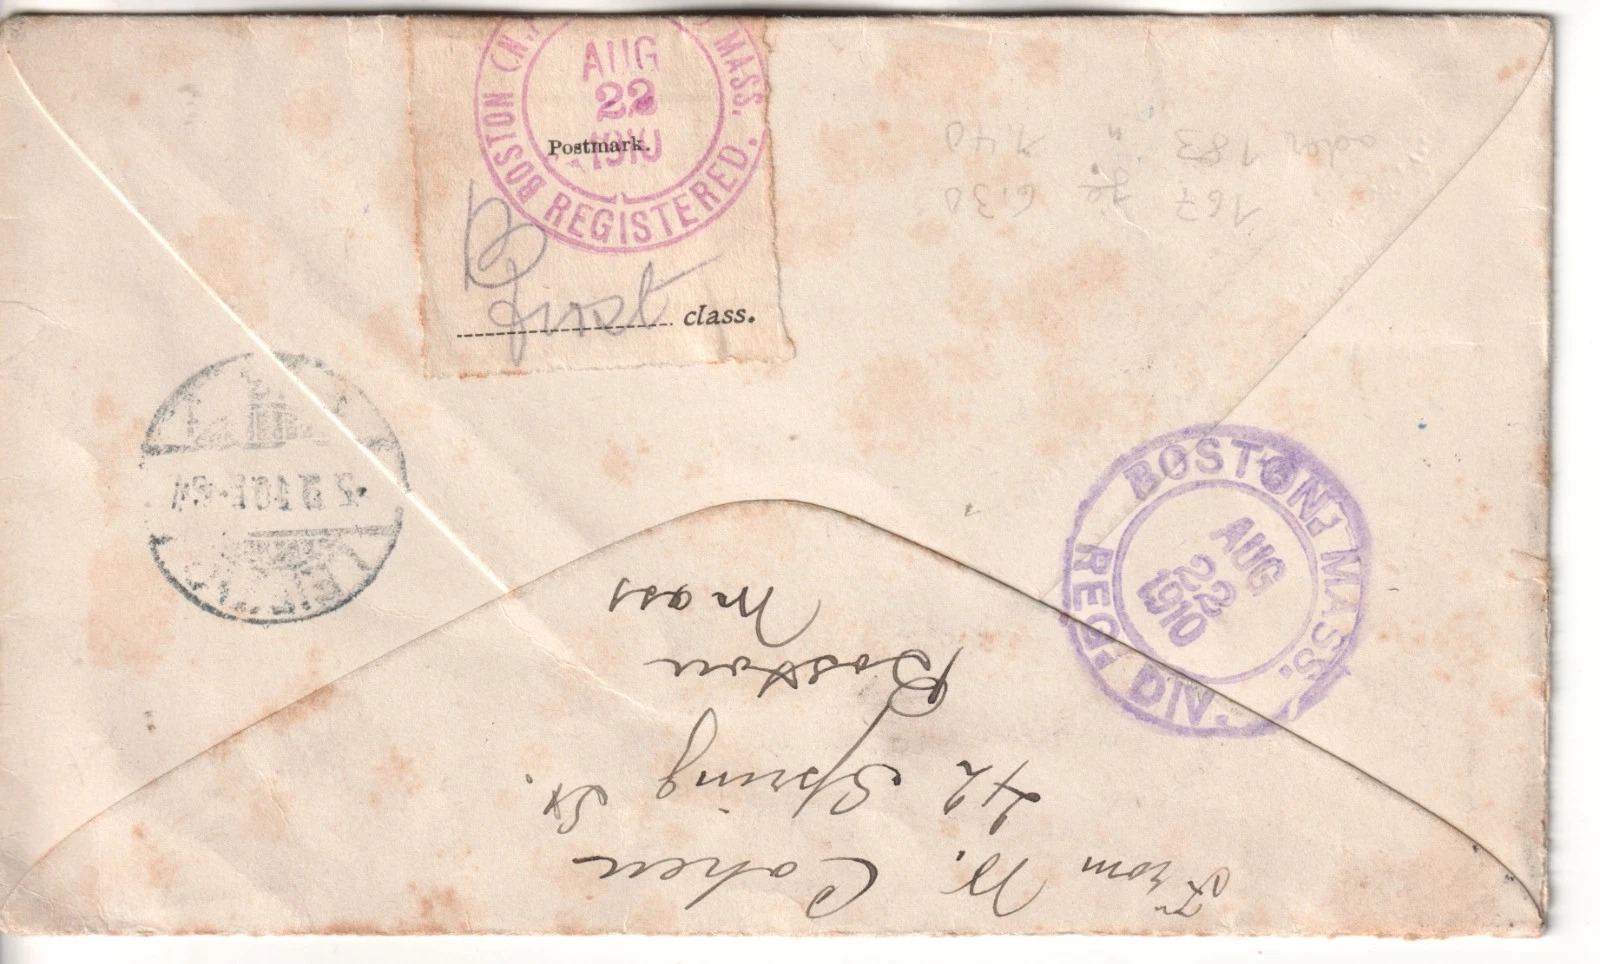 BOSTON (N. MASS.
AUG
22
1910
REGISTERED.
Postmark.
First class.
167 6.30
oder 183 " 7.40
BOSTON, MASS.
AUG
22
1910
REG. DIV.
From W. Cohen
42 Spring St.
Boston
Mass